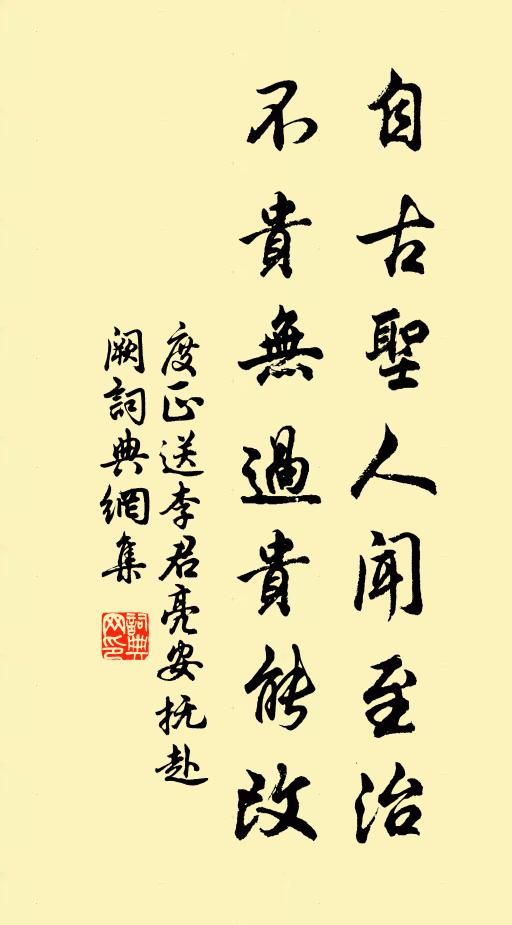 自古聖人聞至治
不貴無過貴能改
度正送李君亮安抚赴
阙詞典網集
詞典
网印